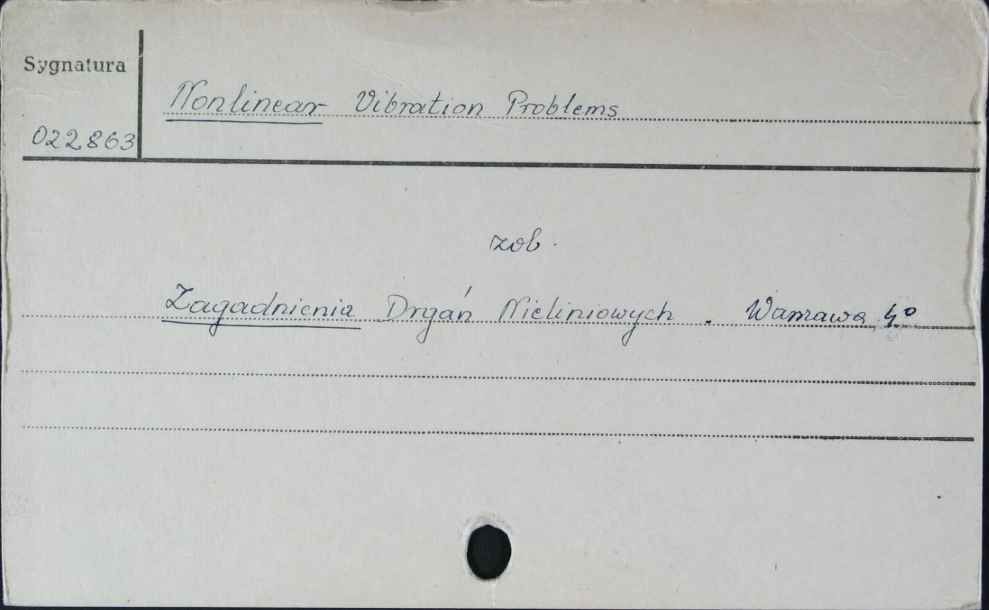 Sygnatura
Nonlinear Vibration Problems
022863
zob.
Zagadnienia Drgań Nieliniowych. Warszawa 4°